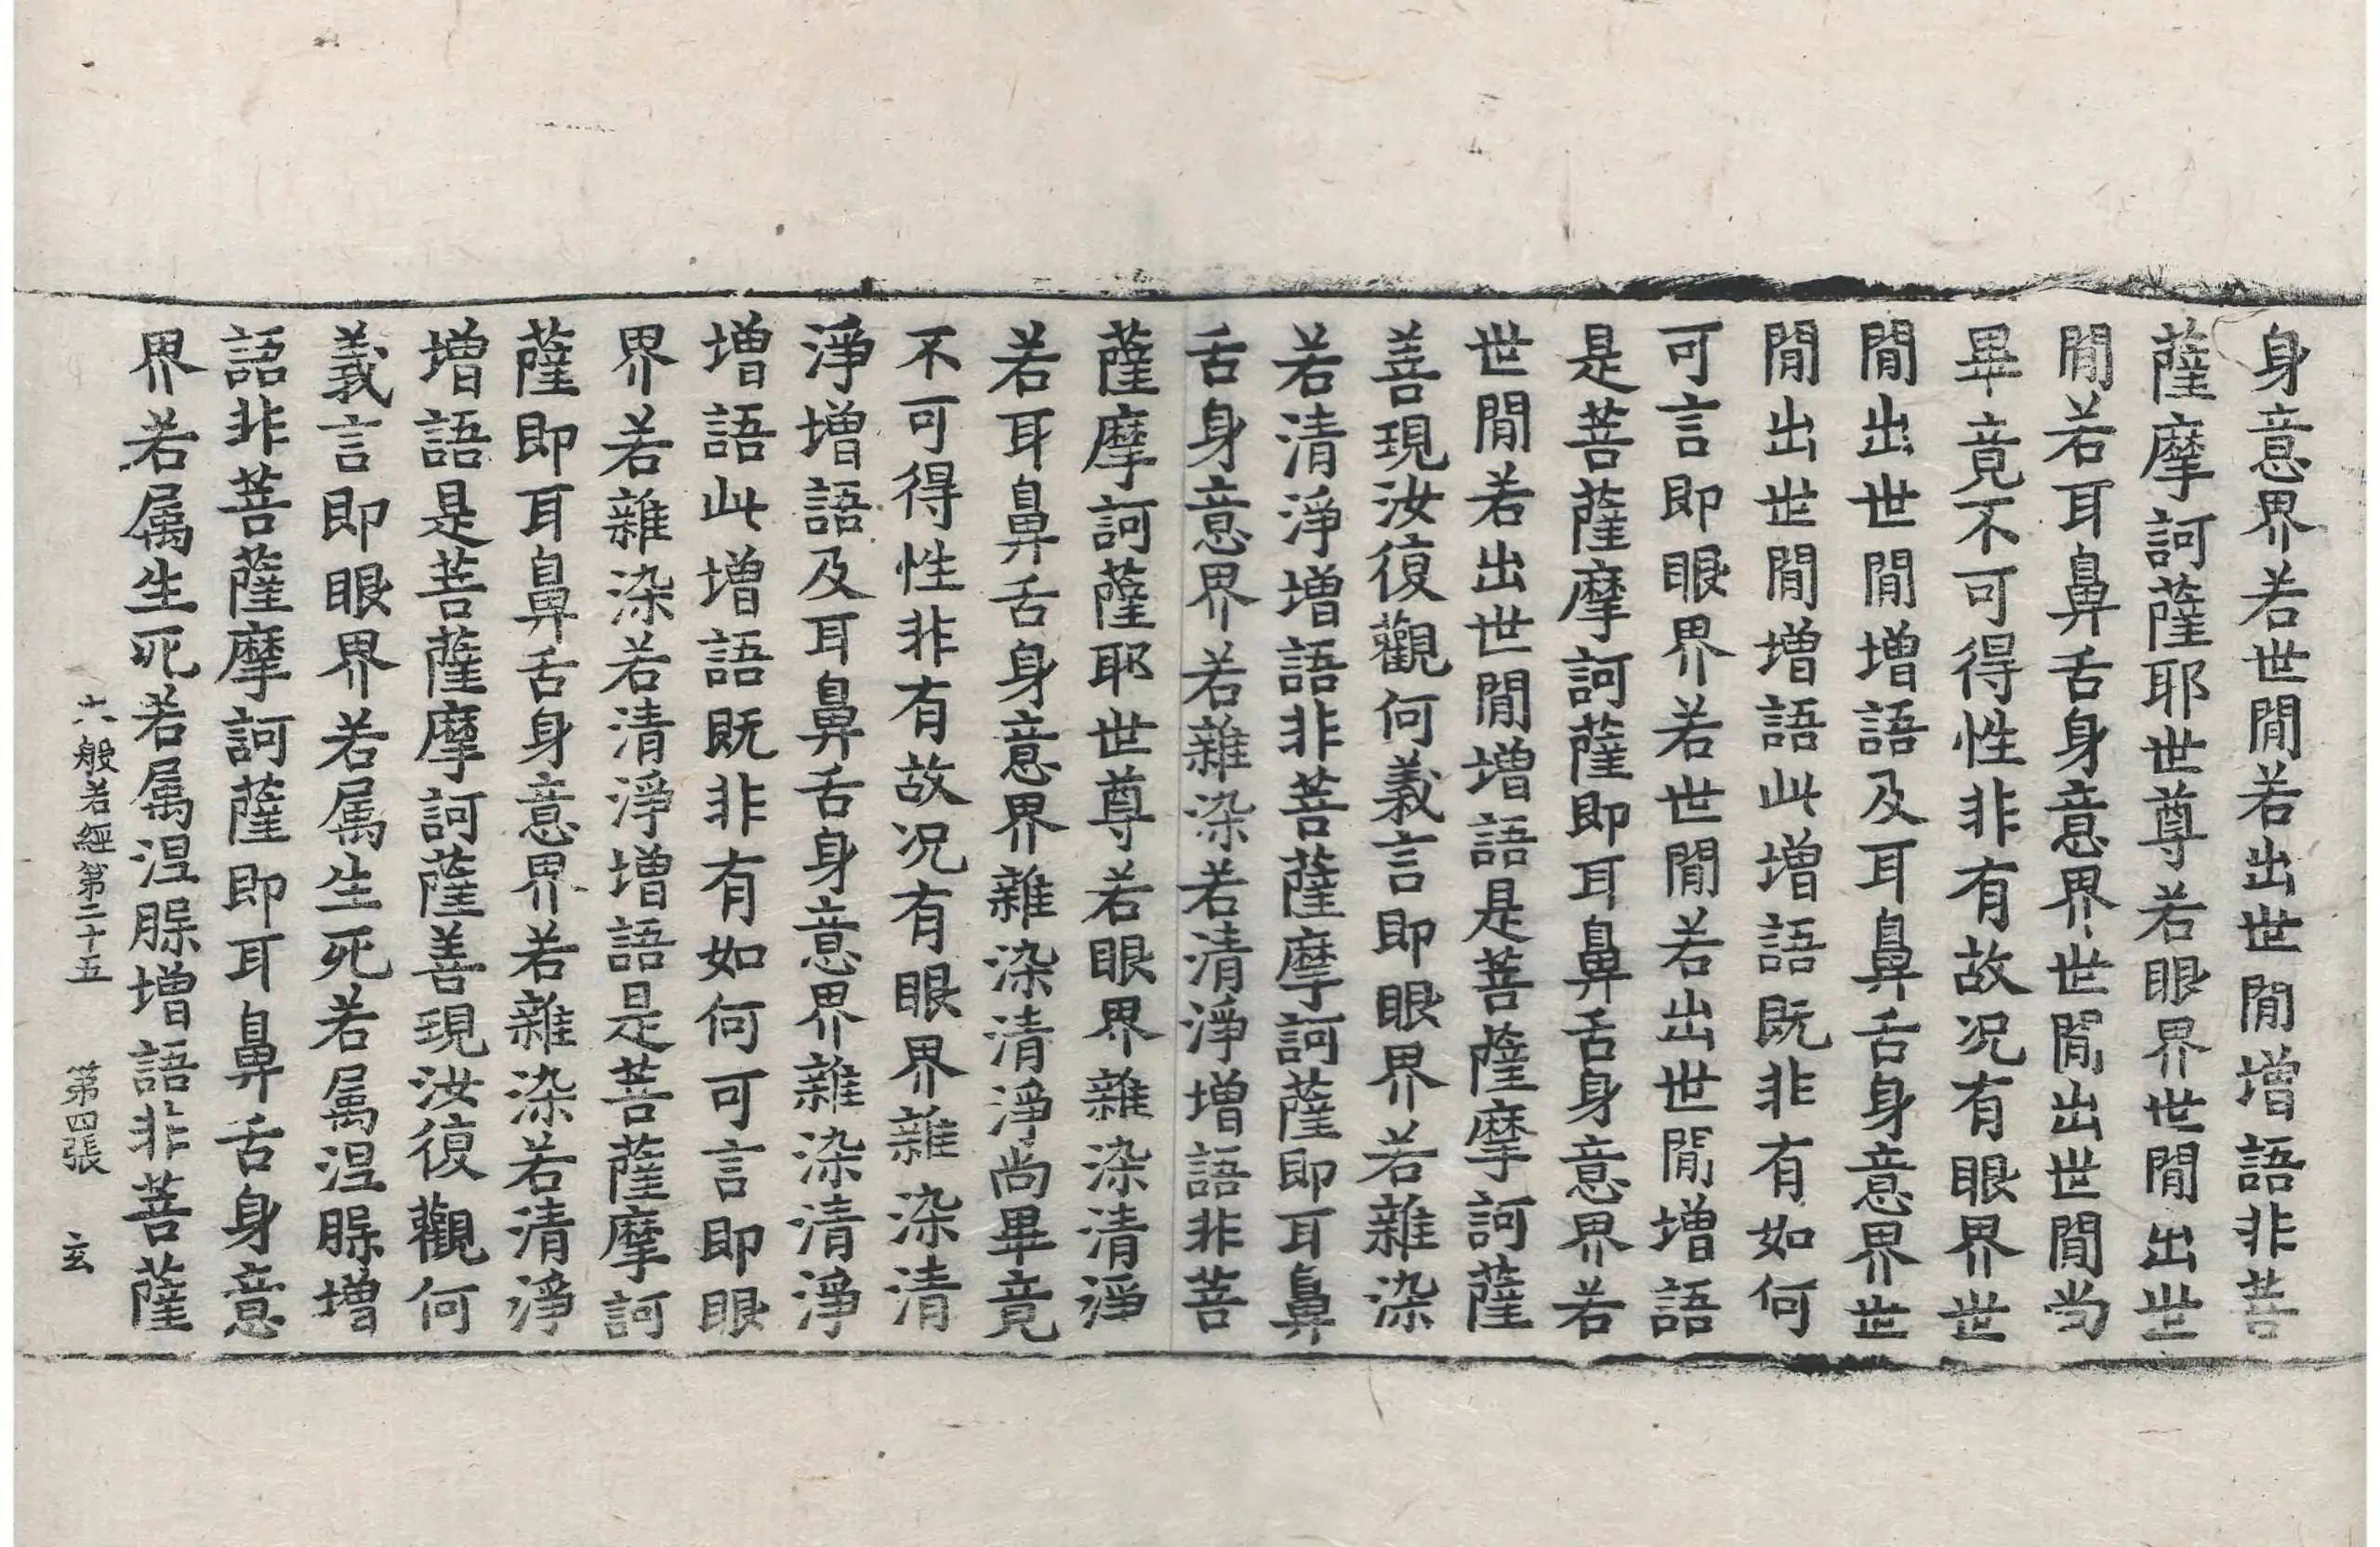 身意界若世閒若出世閒增語非菩
薩摩訶薩耶世尊若眼界世閒出世
閒若耳鼻舌身意界世閒出世閒尚
畢竟不可得性非有故况有眼界世
閒出世閒增語及耳鼻舌身意界世
閒出世閒增語此增語既非有如何
可言即眼界若世閒若出世閒增語
是菩薩摩訶薩即耳鼻舌身意界若
世閒若出世閒增語是菩薩摩訶薩
善現汝復觀何義言即眼界若雜染
若清淨增語非菩薩摩訶薩即耳鼻
舌身意界若雜染若清淨增語非菩
薩摩訶薩耶世尊若眼界雜染清淨
若耳鼻舌身意界雜染清淨尚畢竟
不可得性非有故况有眼界雜染清
淨增語及耳鼻舌身意界雜染清淨
增語此增語既非有如何可言即眼
界若雜染若清淨增語是菩薩摩訶
薩即耳鼻舌身意界若雜染若清淨
增語是菩薩摩訶薩善現汝復觀何
義言即眼界若属生死若属涅脲增
語非菩薩摩訶薩即耳鼻舌身意
界若属生死若属涅脲增語非菩薩
六般若經第二十五 第四張 玄